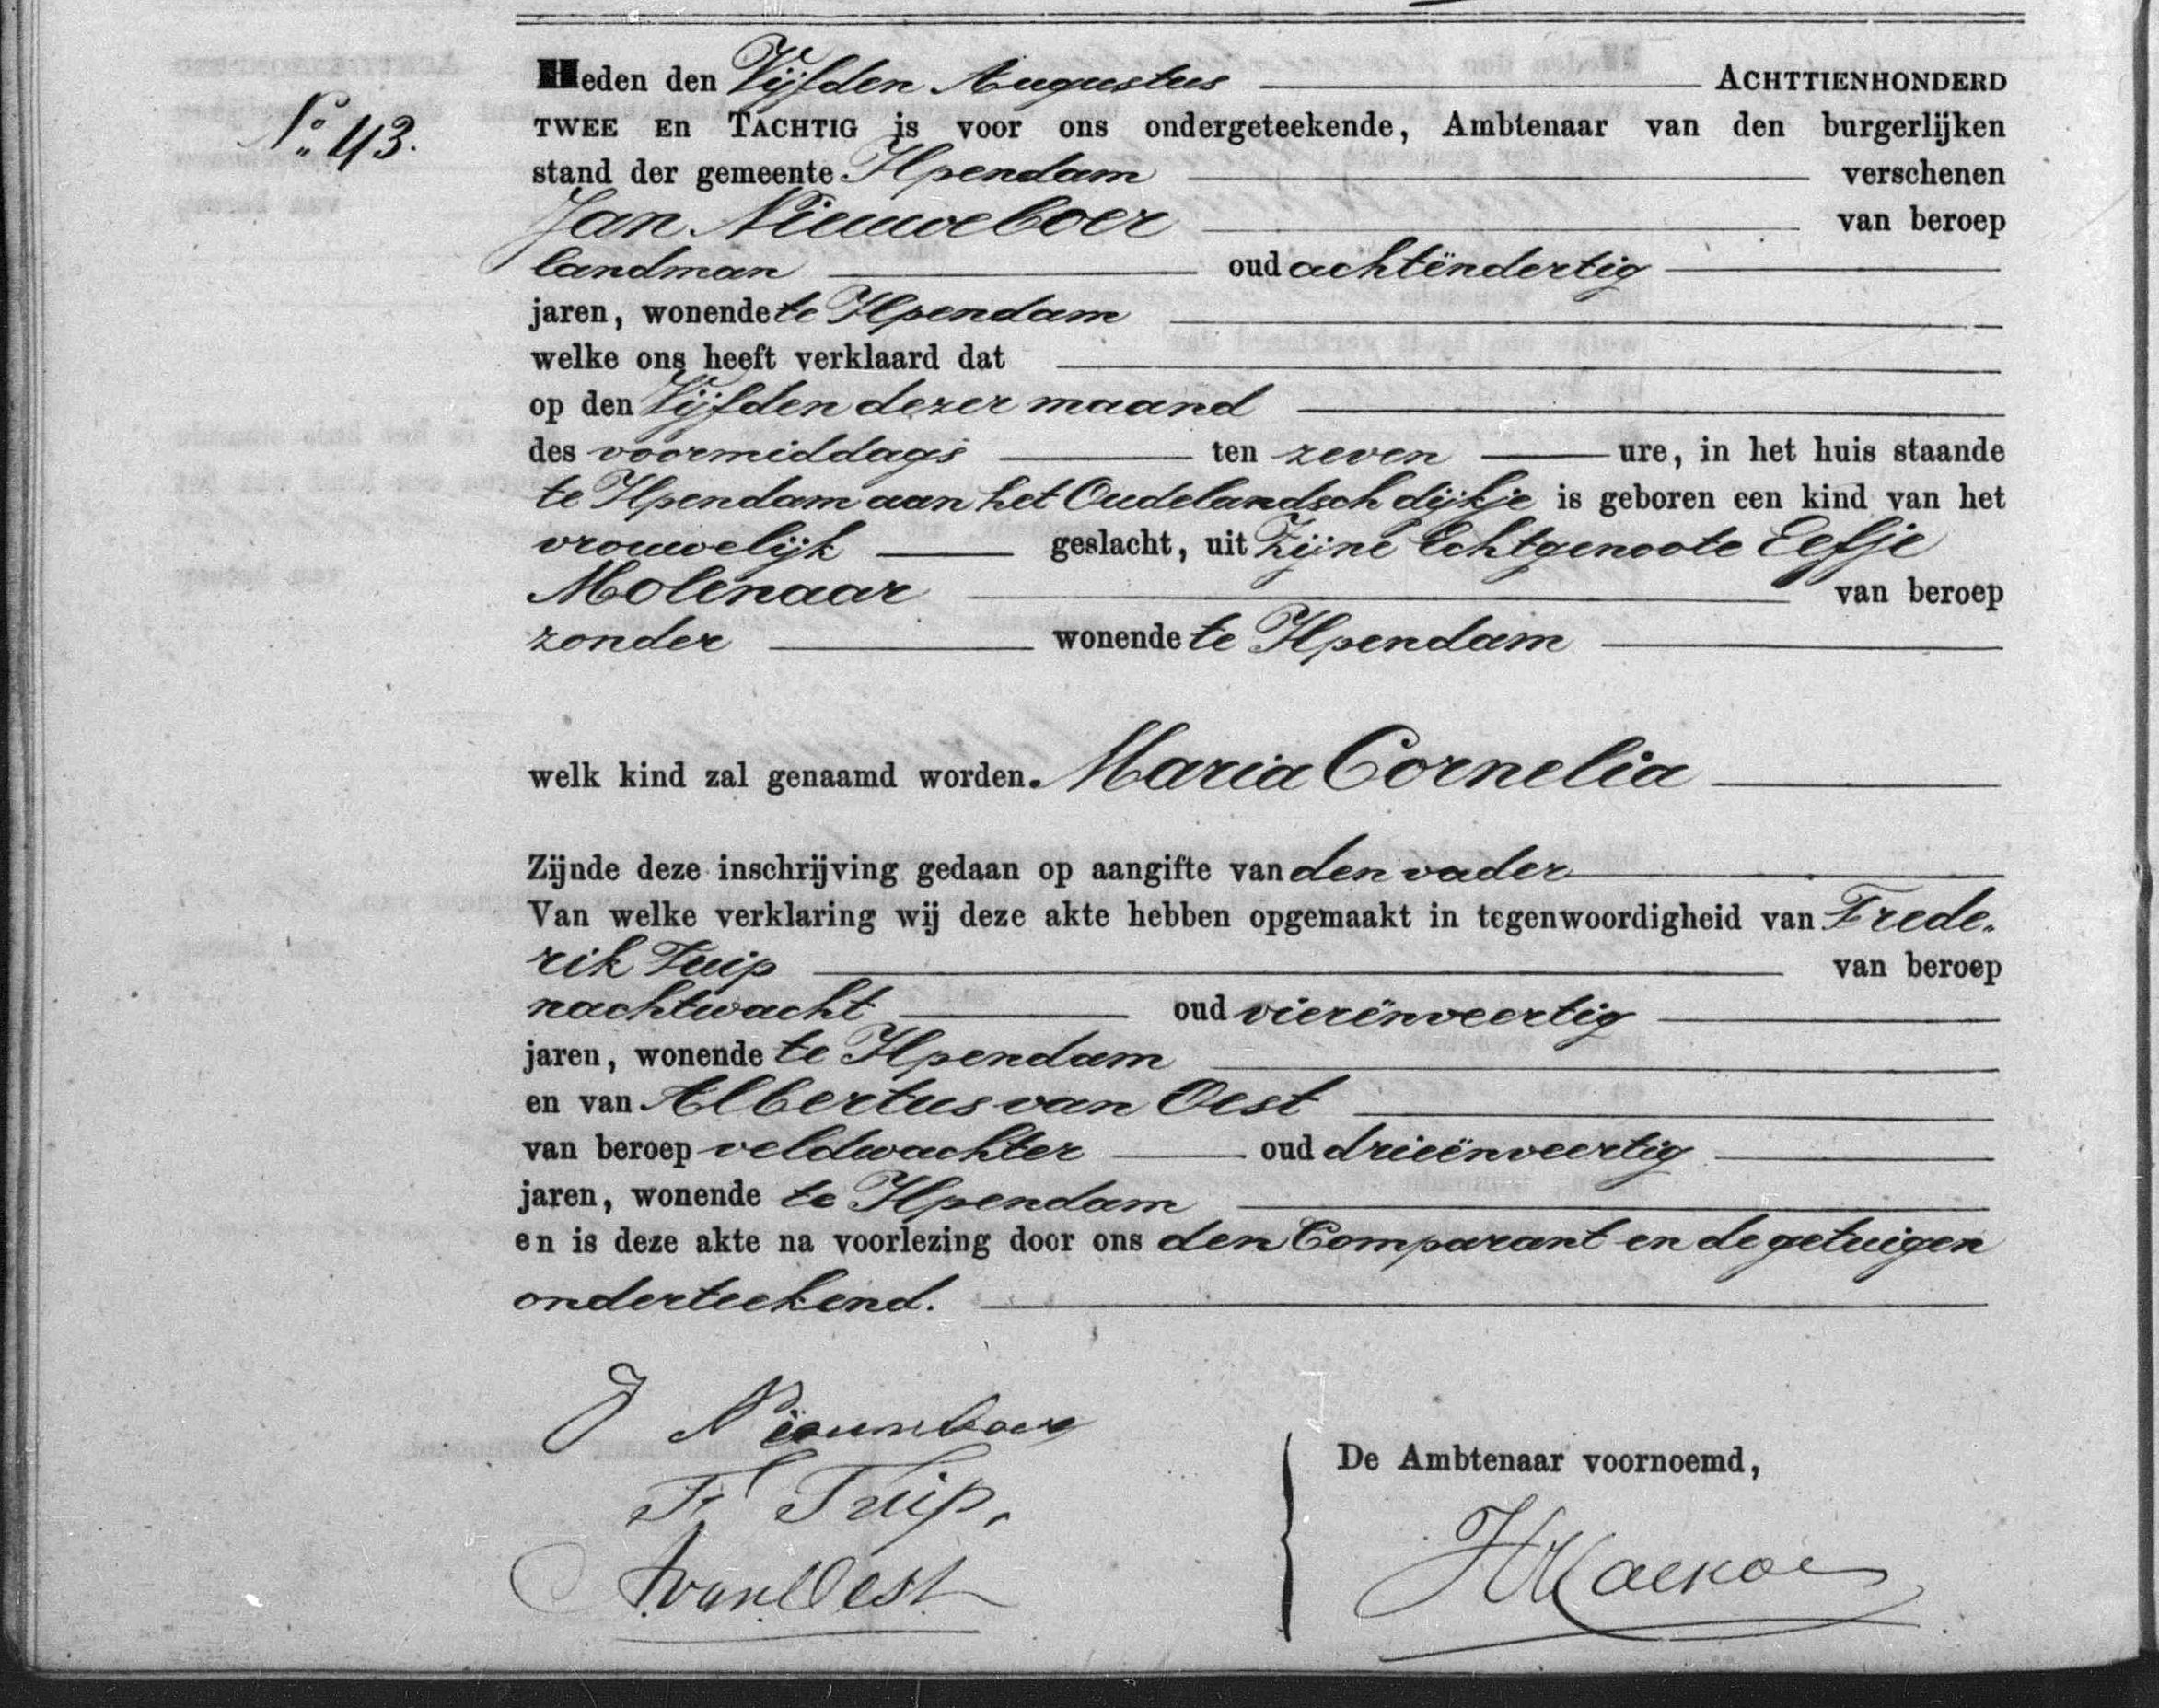 Heden den Vijfden Augustus ACHTTIENHONDERD
No. 43.
TWEE EN TACHTIG is voor ons ondergeteekende, Ambtenaar van den burgerlijken
stand der gemeente Ilpendam verschenen
Jan Nieuweboer van beroep
landman oud achtëndertig
jaren, wonende te Ilpendam
welke ons heeft verklaard dat
op den Vijfden dezer maand
des voormiddags ten zeven ure, in het huis staande
te Ilpendam aan het Oudelandsch dijkje is geboren een kind van het
vrouwelijk geslacht, uit Zijne Echtgenoote Eefje
Molenaar van beroep
zonder wonende te Ilpendam
welk kind zal genaamd worden. Maria Cornelia
Zijnde deze inschrijving gedaan op aangifte van den vader
Van welke verklaring wij deze akte hebben opgemaakt in tegenwoordigheid van Frede.
rik Tuip van beroep
nachtwacht oud vierënveertig
jaren, wonende te Ilpendam
en van Albertus van Oest
van beroep veldwachter oud drieënveertig
jaren, wonende te Ilpendam
en is deze akte na voorlezing door ons den Comparant en de getuigen
onderteekend.
J
F Tuip.
A van Oest
De Ambtenaar voornoemd,